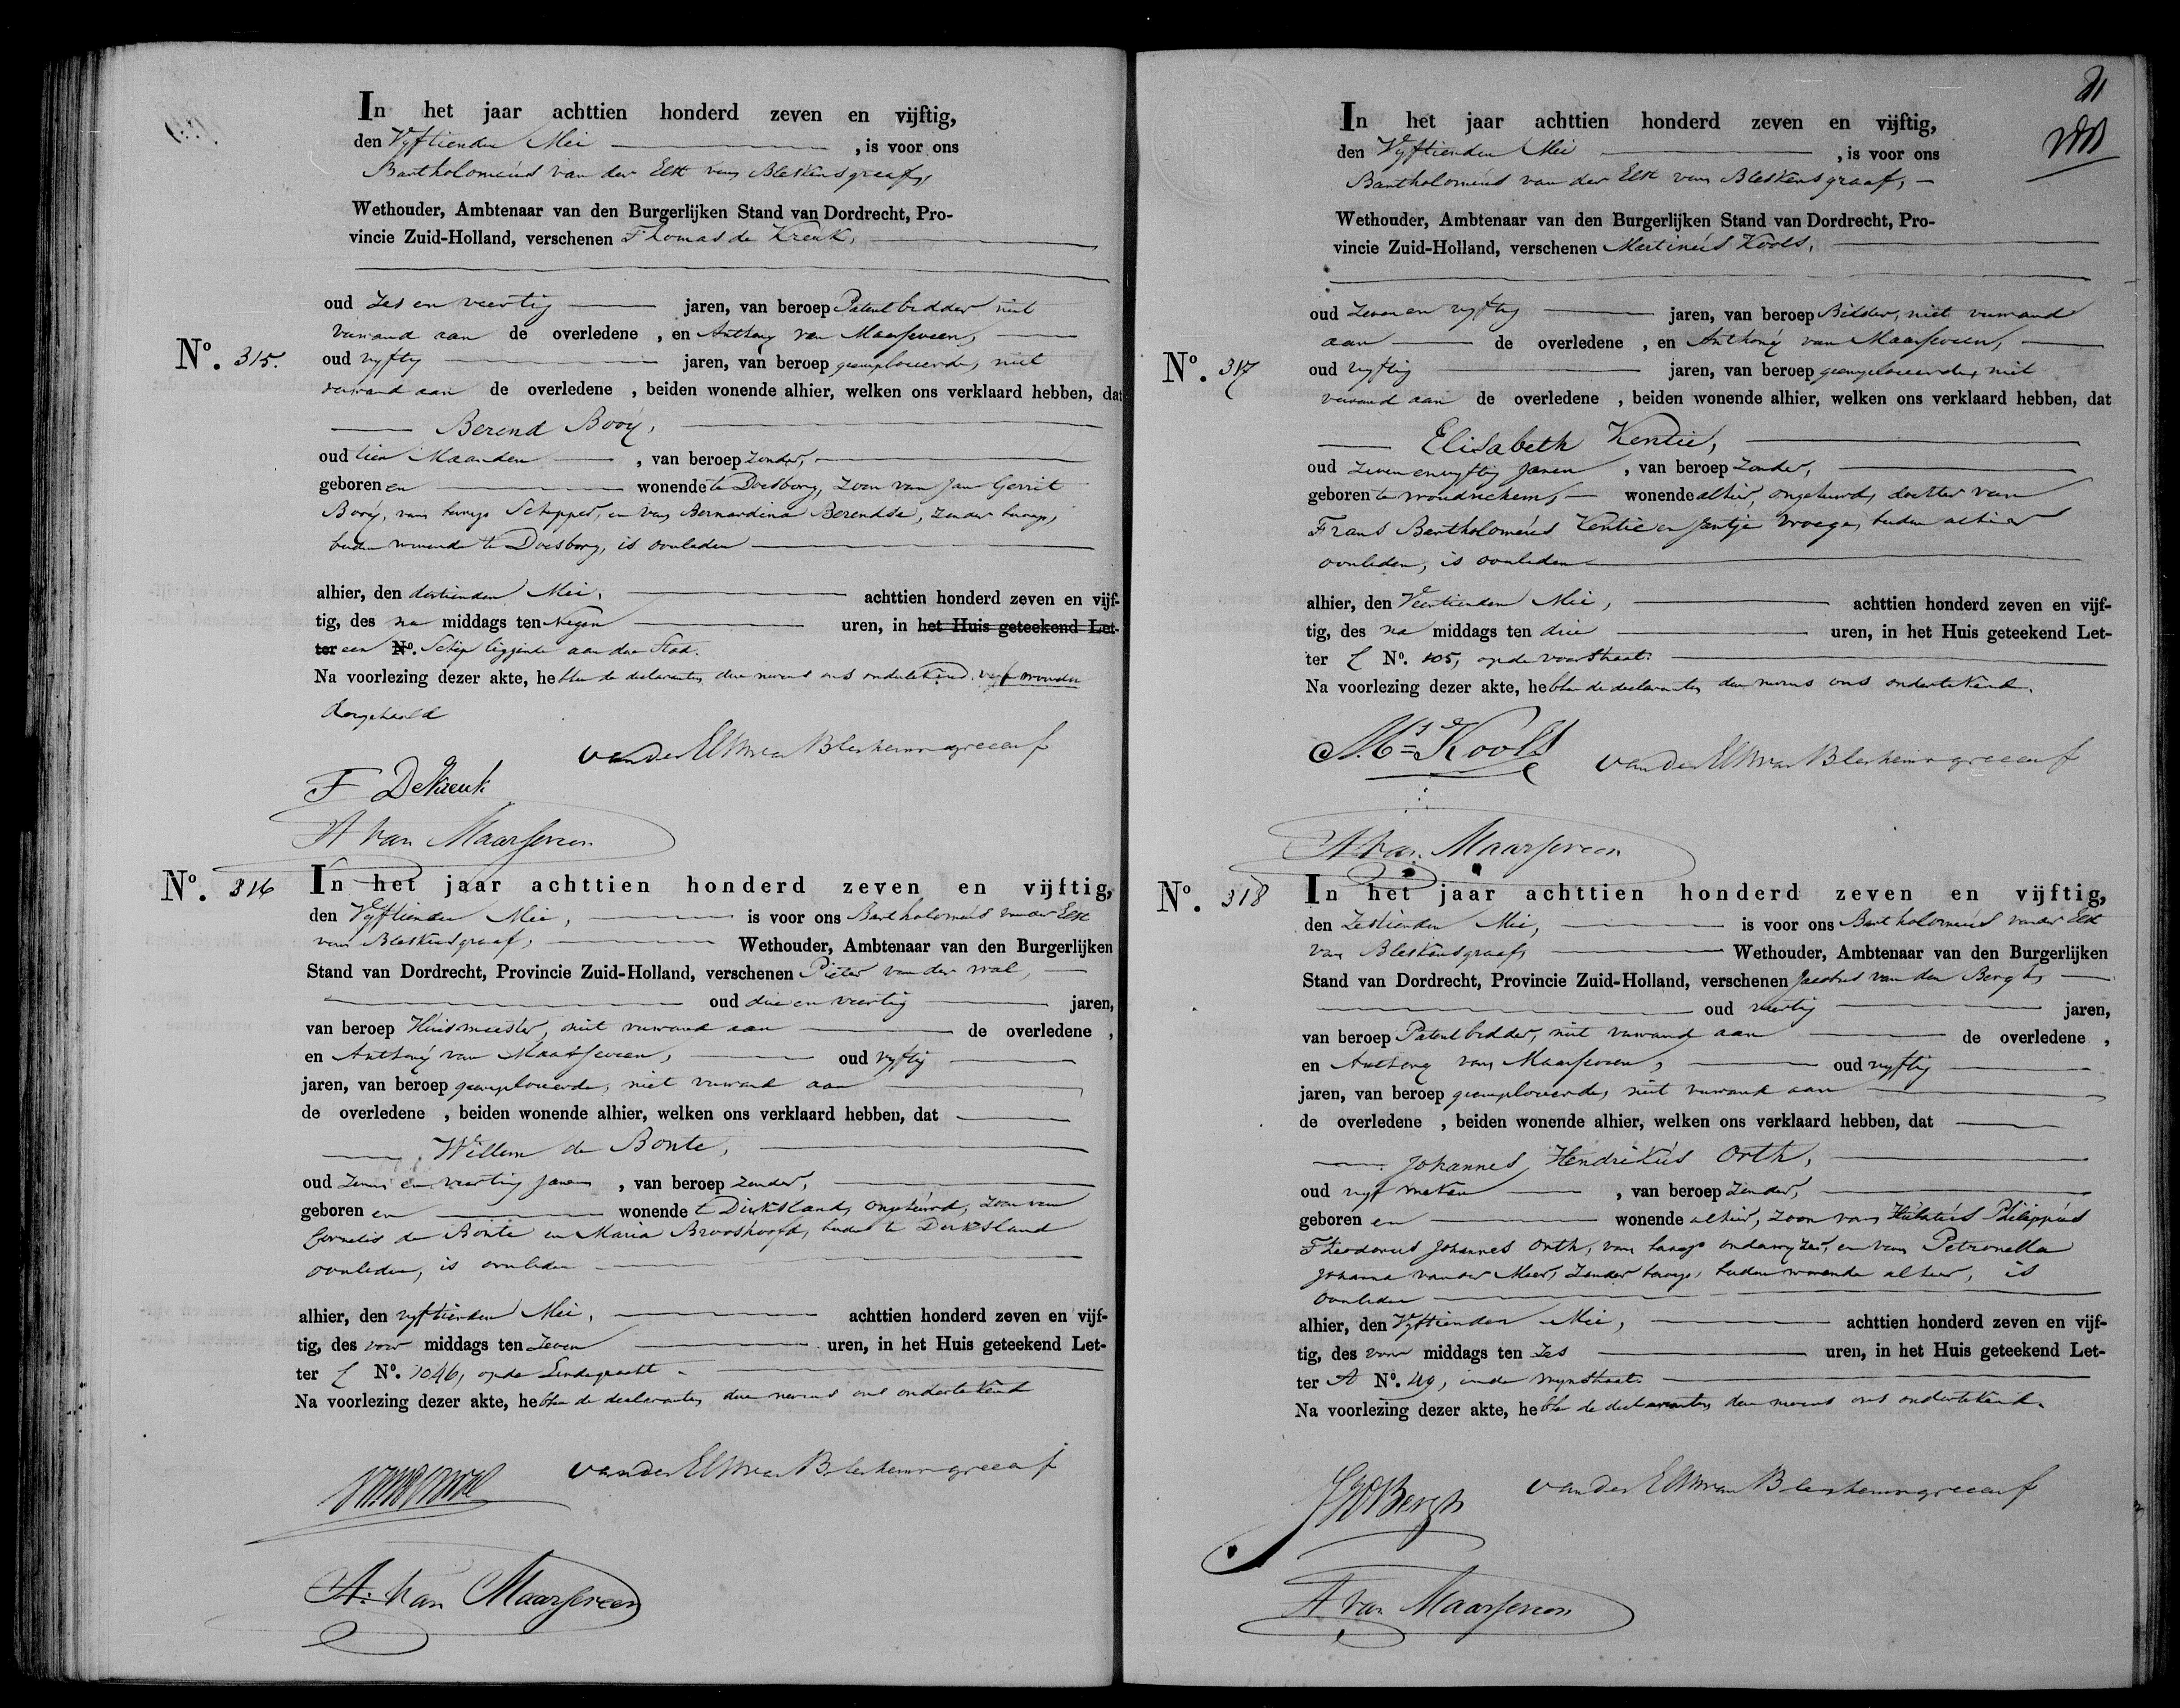 In het jaar achttien honderd zeven en vijftig,
den Vyftienden Mei , is voor ons
Bartholomeus van der Elst van Bleskensgraaf,
Wethouder, Ambtenaar van den Burgerlijken Stand van Dordrecht, Pro-
vincie Zuid-Holland, verschenen Thomas de Kreuk,
oud Zes en veertig jaren, van beroep Patentbidder niet
verwand aan de overledene , en Anthony van Maarseveen,
No. 315. oud vyftig jaren, van beroep geemploieerde, niet
verwand aan de overledene , beiden wonende alhier, welken ons verklaard hebben, dat
Berend Booy,
oud tien Maanden , van beroep zonder,
geboren en wonende te Doesborg, Zoon van Jan Gerrit
Booy, van beroep Schipper, en van Bernardina Berendse, zonder beroep,
beiden wonende te Doesborg, is overleden
alhier, den dertienden Mei, achttien honderd zeven en vijf-
tig, des na middags ten Negen uren, in het Huis geteekend Let-
ter een No. Schip liggende aan deze Stad.
Na voorlezing dezer akte, hebben de declaranten deze nevens ons onderteekend. vyf woorden
doorgehaald
van der Elst van Bleskensgraaf
F De Kreuk
A van Maarseveen
No. 316 In het jaar achttien honderd zeven en vijftig,
den Vyftienden Mei, is voor ons Bartholomeus van der Elst
van Bleskensgraaf, Wethouder, Ambtenaar van den Burgerlijken
Stand van Dordrecht, Provincie Zuid-Holland, verschenen Pieter van der Wal,
oud drie en veertig jaren,
van beroep Huismeester, niet verwand aan de overledene ,
en Anthony van Maarseveen, oud vyftig
jaren, van beroep geemploieerde, niet verwand aan
de overledene , beiden wonende alhier, welken ons verklaard hebben, dat
Willem de Bonte,
oud en veertig Jaren , van beroep zonder,
geboren en wonende te Dirksland, ongehuwd, zoon van
Cornelis de Bonte en Maria Brooshooft, beiden te Dirksland
overleden, is overleden
alhier, den vyftienden Mei, achttien honderd zeven en vijf-
tig, des voor middags ten Zeven uren, in het Huis geteekend Let-
ter C No. 1046, op de Lindegracht
Na voorlezing dezer akte, hebben de declaranten deze nevens ons onderteekend
van der Elst van Bleskensgraaf
A. van Maarseveen
In het jaar achttien honderd zeven en vijftig,
den Vyftienden Mei , is voor ons
Bartholomeus van der Elst van Bleskensgraaf,
Wethouder, Ambtenaar van den Burgerlijken Stand van Dordrecht, Pro-
vincie Zuid-Holland, verschenen Martinus Kools,
oud Zeven en vyftig jaren, van beroep Bidder, niet verwand
aan de overledene , en Anthony van Maarseveen,
No. 317 oud vyftig jaren, van beroep geemploieerde, niet
verwand aan de overledene , beiden wonende alhier, welken ons verklaard hebben, dat
Elisabeth Kentie,
oud Zeven en vyftig Jaren , van beroep Zonder,
geboren te Woudrichem, wonende alhier, ongehuwd, dochter van
Frans Bartholomeus Kentie en Jentje Vroege, beiden alhier
overleden, is overleden
alhier, den Veertienden Mei, achttien honderd zeven en vijf-
tig, des na middags ten drie uren, in het Huis geteekend Let-
ter C No. 105, op de voorstraat.
Na voorlezing dezer akte, hebben de declaranten deze nevens ons onderteekend.
Ms Kools
van der Elst van Bleskensgraaf
A. van Maarseveen
No. 318 In het jaar achttien honderd zeven en vijftig,
den Zestienden Mei, is voor ons Bartholomeus van der Elst
van Bleskensgraaf, Wethouder, Ambtenaar van den Burgerlijken
Stand van Dordrecht, Provincie Zuid-Holland, verschenen Jacobus van den Bergh,
oud veertig jaren,
van beroep Patentbidder, niet verwand aan de overledene ,
en Anthony van Maarseveen, oud vyftig
jaren, van beroep geemploieerde, niet verwand aan
de overledene , beiden wonende alhier, welken ons verklaard hebben, dat
Johannes Hendrikus Orth,
oud vyf weken , van beroep Zonder,
geboren en wonende alhier, zoon van Philippus
Theodorus Johannes Orth, van beroep onderwyzer, en van Petronella
Johanna van der Meer, Zonder beroep, beiden wonende alhier, is
overleden
alhier, den Vyftienden Mei, achttien honderd zeven en vijf-
tig, des voor middags ten Zes uren, in het Huis geteekend Let-
ter A No. 49, in de Wynstraat.
Na voorlezing dezer akte, hebben de declaranten deze nevens ons onderteekend.
JVD Bergh
van der Elst van Bleskensgraaf
A van Maarseveen